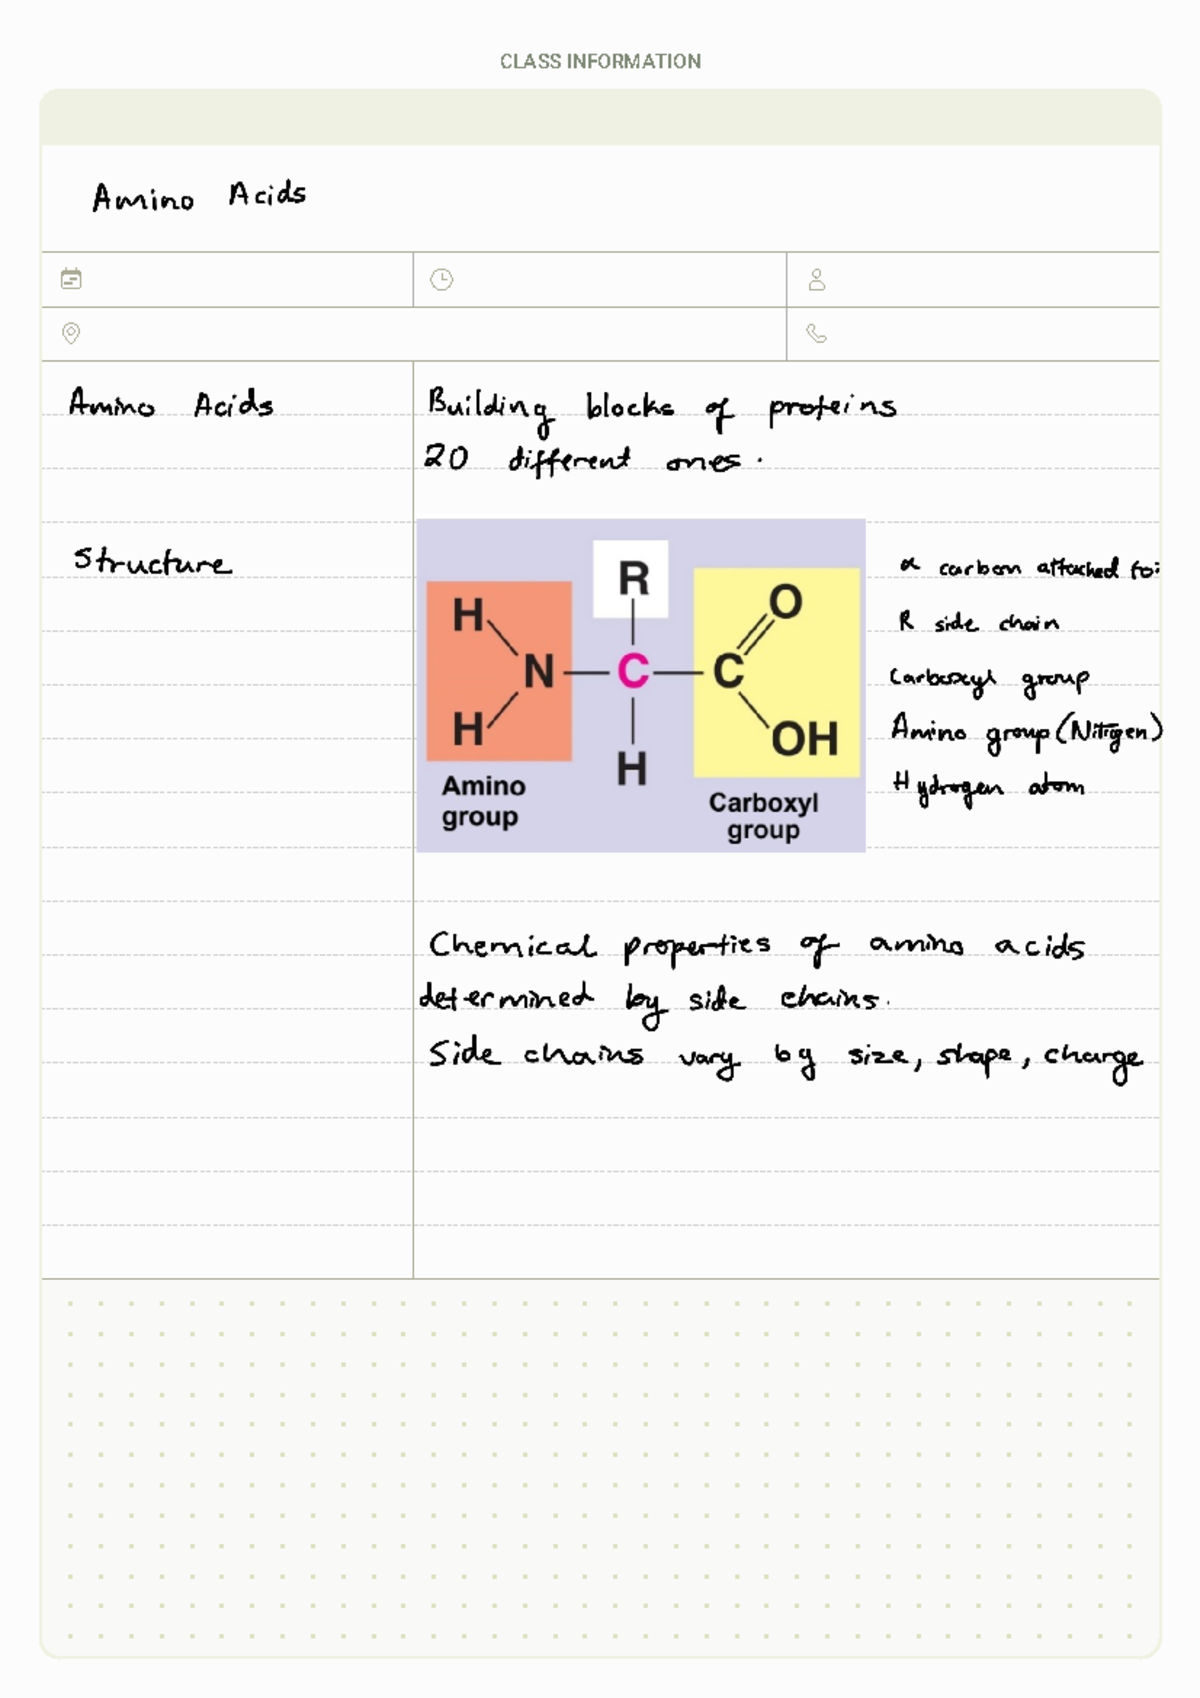 CLASS INFORMATION
Amino Acids
Amino Acids
Building blocks of proteins
20 different ones.
Structure
R
H
O
N
C
C
H
OH
H
Amino
group
Carboxyl
group
α carbon attached to:
R side chain
Carboxyl group
Amino group (Nitrgen)
Hydrogen atom
Chemical properties of amino acids
determined by side chains.
Side chains vary by size, shape, charge